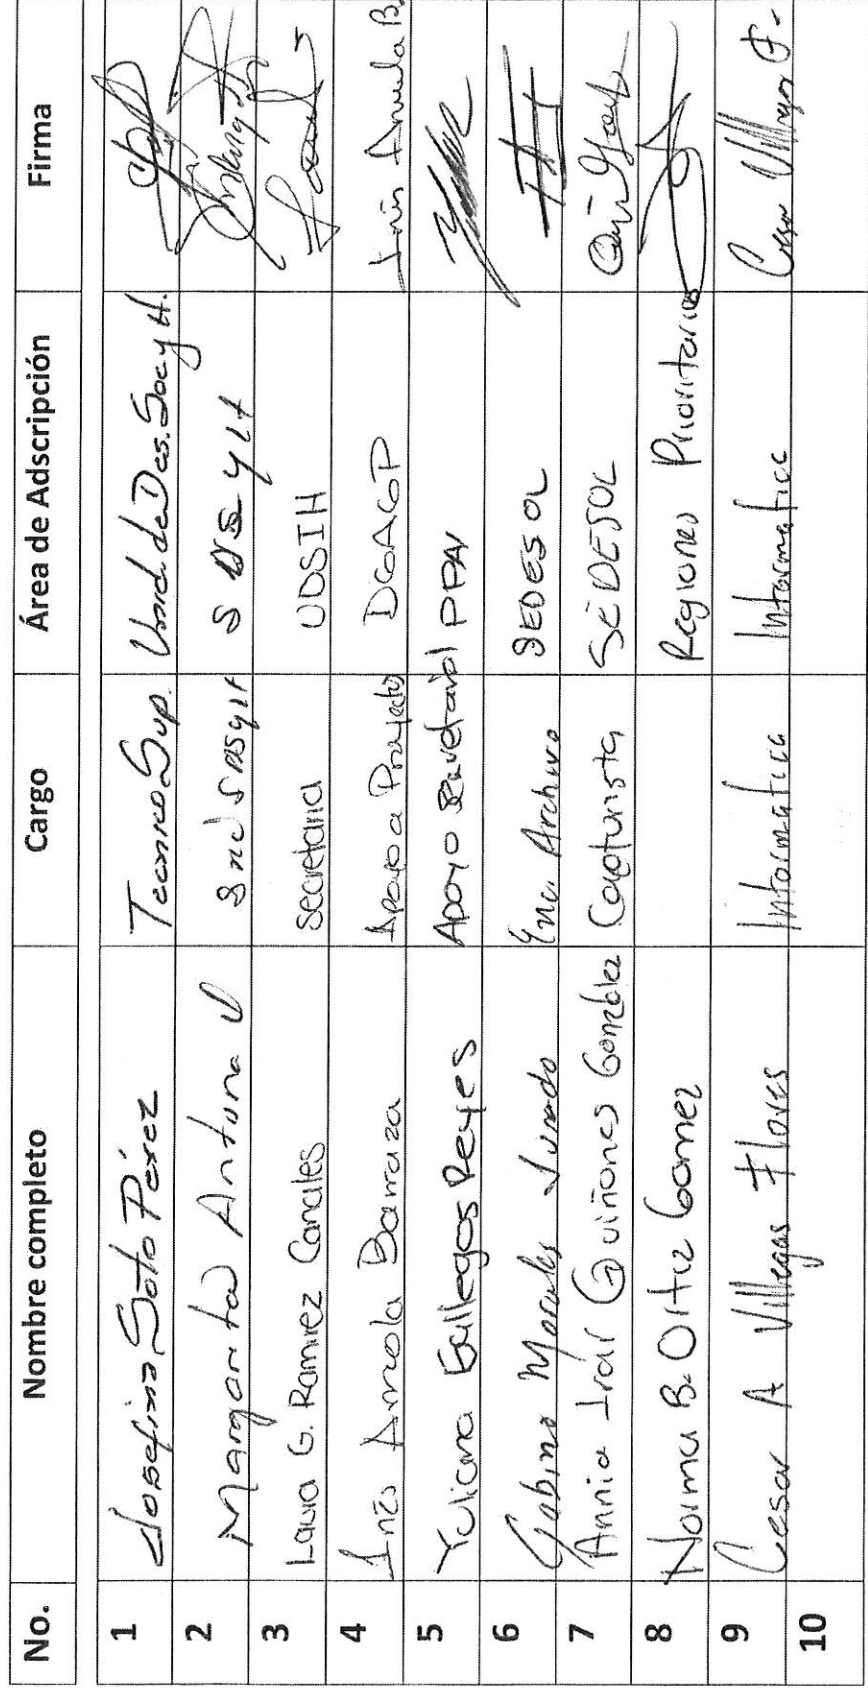 No. Nombre completo Cargo Área de Adscripción Firma
1 Josefina Soto Pérez Tecnico Sup. Unid. de Des. Soc y H.
2 Margarita Antuna S D S y H
3 Laura G. Ramirez Canales Secretaria UDSIH
4 Inés Arreola Barraza Apoyo a Proyectos DGAGP Inés Arreola B.
5 Yuliana Gallegos Reyes Apoyo Secretarial PPAV
6 Gabino Morales Jurado Enc. Archivo SEDESOL
7 Annia Iraír Quiñones González Capturista SEDESOL
8 Norma B. Ortiz Gomez Regiones Prioritarias
9 Cesar A Villegas Flores Informatica Informatica Cesar Villegas F.
10